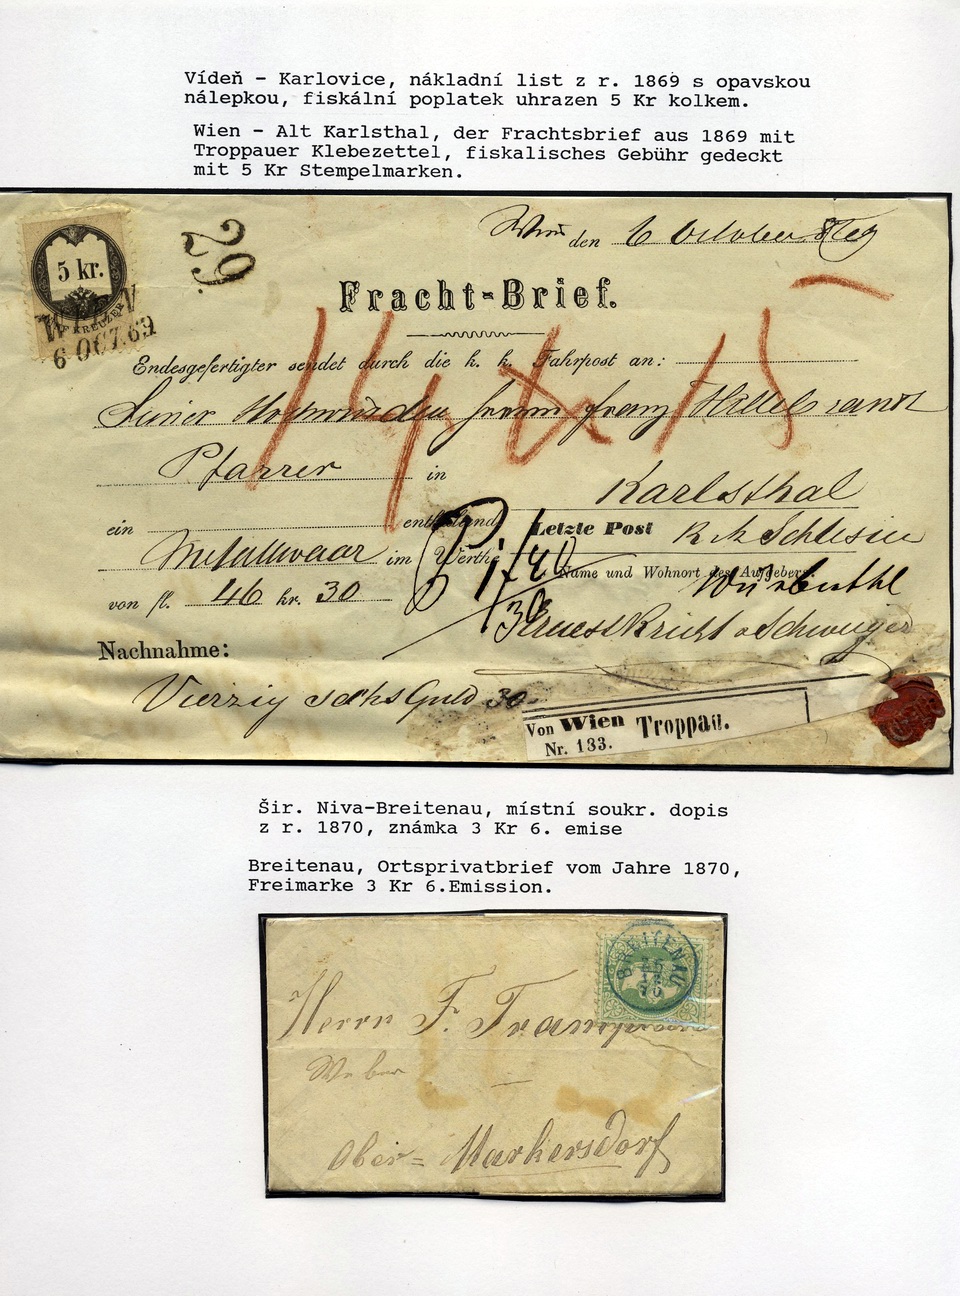 Vídeň - Karlovice, nákladní list z r. 1869 s opavskou
nálepkou, fiskální poplatek uhrazen 5 Kr kolkem.
Wien - Alt Karlsthal, der Frachtsbrief aus 1869 mit
Troppauer Klebezettel, fiskalisches Gebühr gedeckt
mit 5 Kr Stempelmarken.
5 kr.
WIEN
6 OCT. 69
29
Wien den 6 October 869
Fracht-Brief.
Endesgefertigter sendet durch die k. k. Fahrpost an:
14 15
Seiner Hochwürden Herrn Franz
Pfarrer in Karlsthal
ein enthaltend Letzte Post
Metallwaar im Werthe
Name und Wohnort des Aufgebers:
Würbenthl
von fl. 46 kr. 30
Nachnahme:
Vierzig sechs Guld 30
Von Wien Troppau.
Nr. 133.
Šir. Niva-Breitenau, místní soukr. dopis
z r. 1870, známka 3 Kr 6. emise
Breitenau, Ortsprivatbrief vom Jahre 1870,
Freimarke 3 Kr 6.Emission.
BREITENAU
Herrn F.
Weber
Ober=Markersdorf